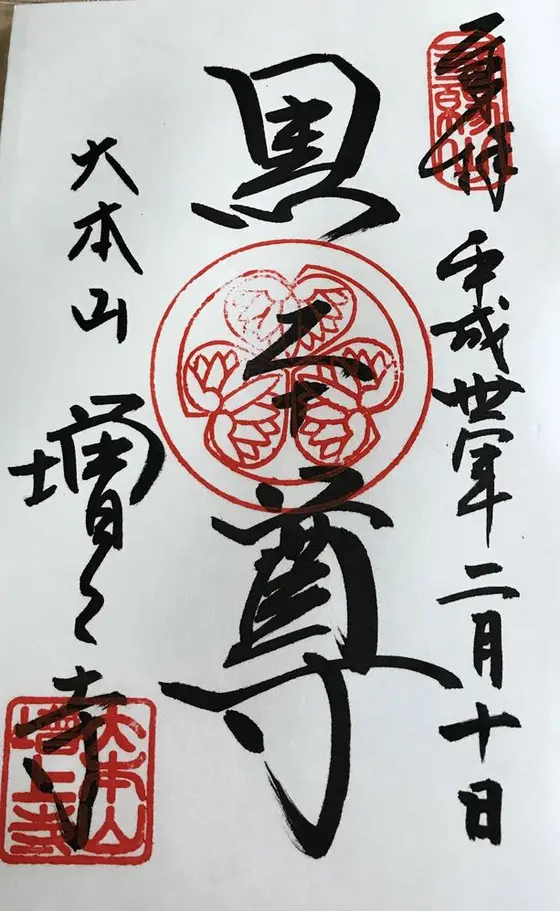 奉拝 平成卅年二月十日
三縁山
黒本尊
大本山 増上寺
大本山
増上寺